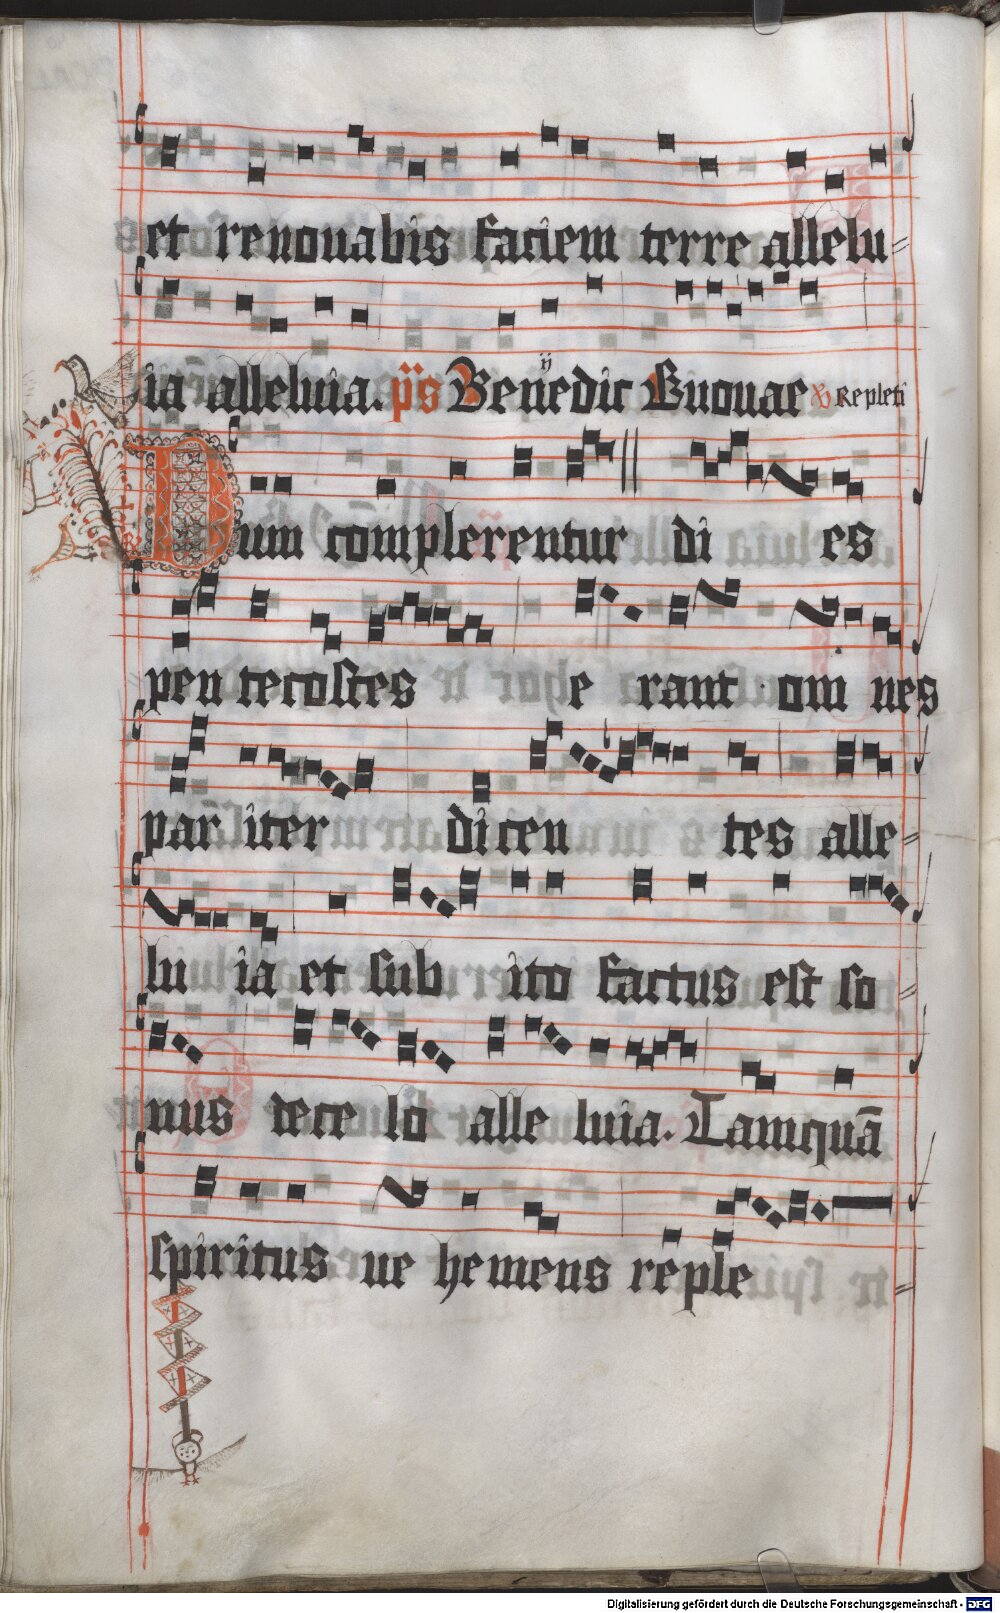 et renouabis faciem terre allelu=
ia alleluia. ps Benedic Euouae Repleti
Dum complerentur di es
pen tecostes e rant om nes
par iter dicen tes alle=
lu ia et sub ito factus est so=
nus dece lo alle luia. Tamquā
spiritus ue hemens reple=
Digitalisierung gefördert durch die Deutsche Forschungsgemeinschaft - DFG